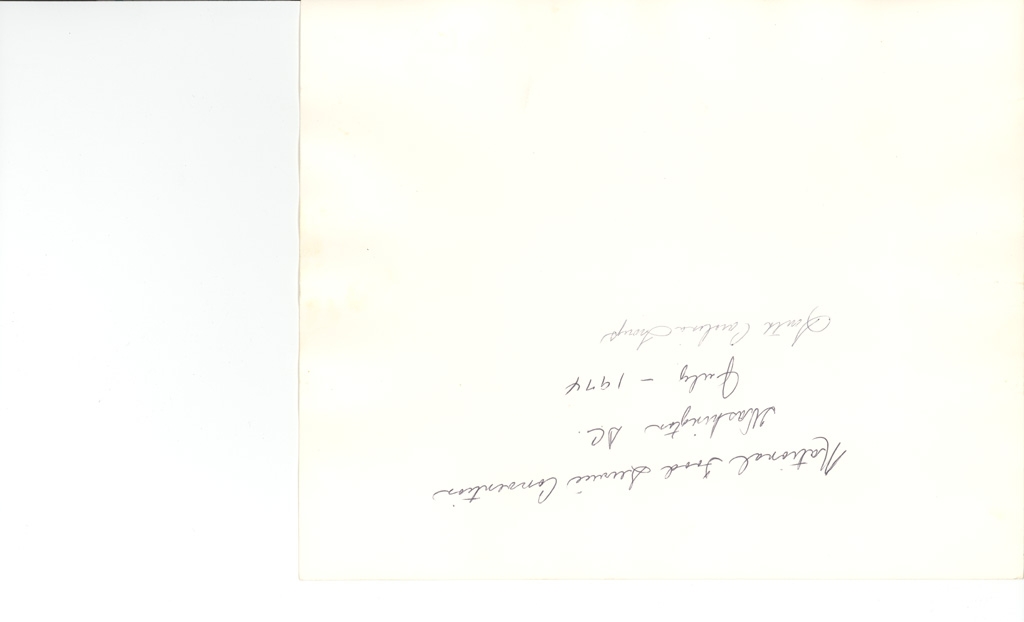 National Food Service Convention
Washington DC.
July - 1974
South Carolina Group